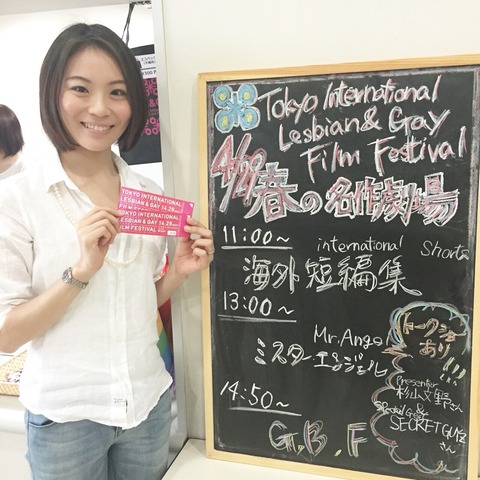 TOKYO INTERNATIONAL
LESBIAN & GAY
FILM FESTIVAL
TOKYO INTERNATIONAL
LESBIAN & GAY
FILM FESTIVAL
Tokyo International
Lesbian & Gay
Film Festival
4/29 春の名作劇場
11:00~
international Shorts
海外短編集
13:00~
Mr.Angel
ミスターエンジェル
トークショー
あり!!!
Presenter
杉山文野さん
&
Special Guest
SECRET GUYZ
さん
14:50~
G.B.F